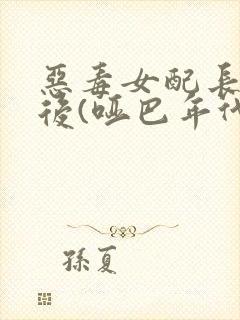 惡毒女配長
後(啞巴年代
孫夏